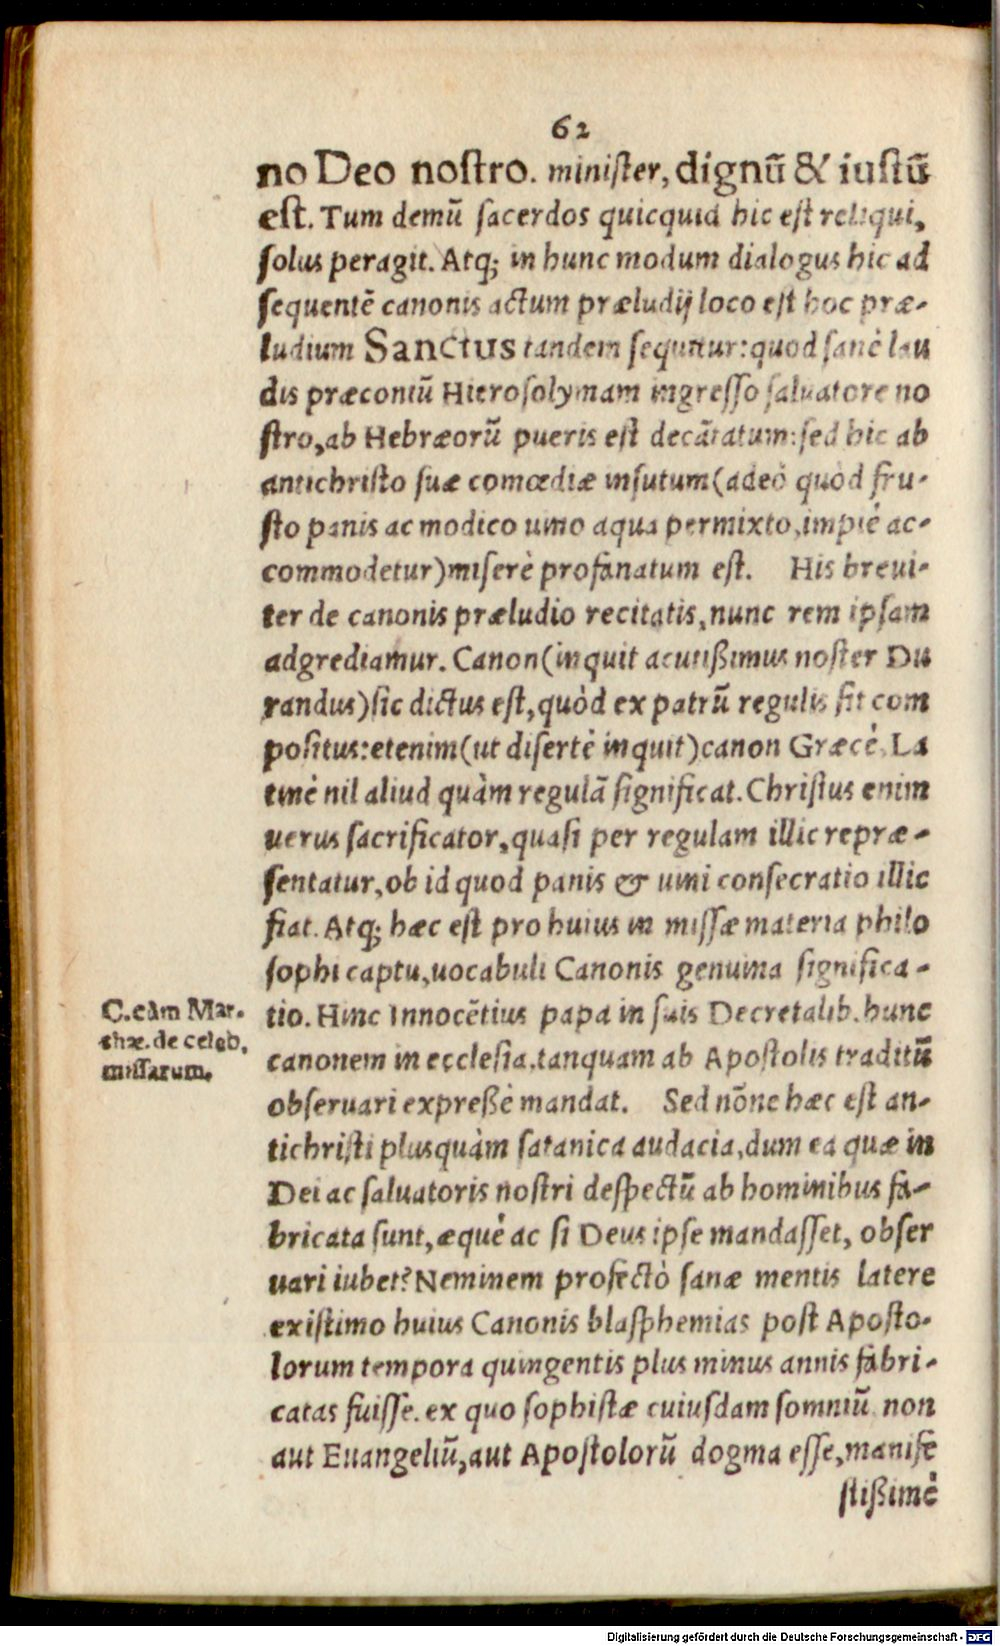 62
no Deo nostro. minister, dignũ & iustũ
est. Tum demũ sacerdos quicquid hic est reliqui,
solus peragit. Atq; in hunc modum dialogus hic ad
sequentẽ canonis actum præludij loco est hoc præ-
ludium Sanctus tandem sequitur: quod sanè lau
dis præconiũ Hierosolymam ingresso saluatore no
stro, ab Hebræorũ pueris est decãtatum: sed hic ab
antichristo suæ comœdiæ insutum (adeò quòd fru-
sto panis ac modico uino aqua permixto, impiè ac-
commodetur) miserè profanatum est. His breui-
ter de canonis præludio recitatis, nunc rem ipsam
adgrediamur. Canon (inquit acutißimus noster Du
randus) sic dictus est, quòd ex patrũ regulis sit com
positus: etenim (ut disertè inquit) canon Græcè, La
tinè nil aliud quàm regulã significat. Christus enim
uerus sacrificator, quasi per regulam illic repræ-
sentatur, ob id quod panis & uini consecratio illic
fiat. Atq; hæc est pro huius in missæ materia philo
sophi captu, uocabuli Canonis genuina significa-
tio. Hinc Innocẽtius papa in suis Decretalib. hunc
canonem in ecclesia, tanquam ab Apostolis traditũ
obseruari expreßè mandat. Sed nõne hæc est an-
tichristi plusquàm satanica audacia, dum ea quæ in
Dei ac saluatoris nostri despectũ ab hominibus fa-
bricata sunt, æquè ac si Deus ipse mandasset, obser
uari iubet? Neminem profectò sanæ mentis latere
existimo huius Canonis blasphemias post Aposto-
lorum tempora quingentis plus minus annis fabri-
catas fuisse. ex quo sophistæ cuiusdam somniũ, non
aut Euangeliũ, aut Apostolorũ dogma esse, manife
stißimè
C. cùm Mar-
thæ. de celeb.
missarum.
Digitalisierung gefördert durch die Deutsche Forschungsgemeinschaft - DFG